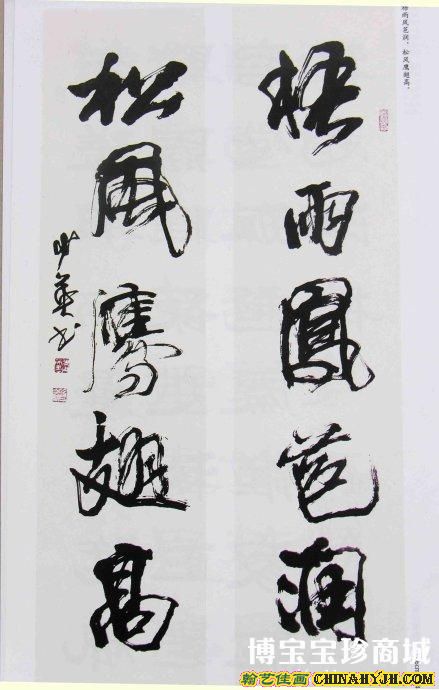 梧雨凤苞润，松风鹰翅高。
梧雨鳳苞潤
松風鷹翅高
博宝宝珍商城
翰艺佳画 CHINAHYJH.COM